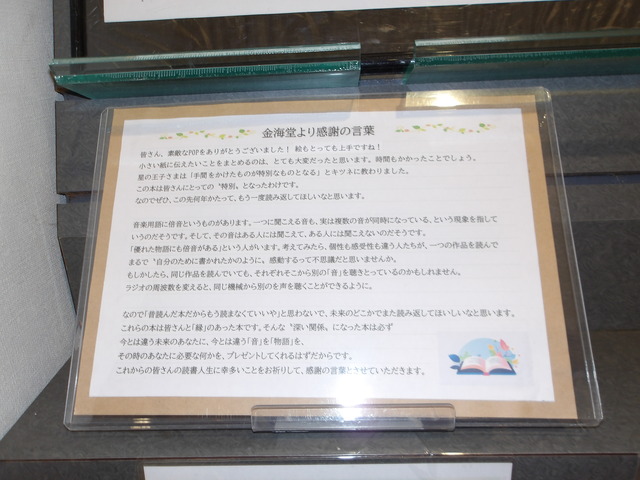 金海堂より感謝の言葉
皆さん、素敵なPOPをありがとうございました！ 絵もとっても上手ですね！
小さい紙に伝えたいことをまとめるのは、とても大変だったと思います。時間もかかったことでしょう。
星の王子さまは「手間をかけたものが特別なものとなる」とキツネに教わりました。
この本は皆さんにとっての〝特別〟となったわけです。
なのでぜひ、この先何年かたって、もう一度読み返してほしいなと思います。
音楽用語に倍音というものがあります。一つに聞こえる音も、実は複数の音が同時になっている、という現象を指して
いうのだそうです。そして、その音はある人には聞こえて、ある人には聞こえないのだそうです。
「優れた物語にも倍音がある」という人がいます。考えてみたら、個性も感受性も違う人たちが、一つの作品を読んで
まるで〝自分のために書かれたかのように、感動するって不思議だと思いませんか。
もしかしたら、同じ作品を読んでいても、それぞれそこから別の「音」を聴きとっているのかもしれません。
ラジオの周波数を変えると、同じ機械から別のを声を聴くことができるように。
なので「昔読んだ本だからもう読まなくていいや」と思わないで、未来のどこかでまた読み返してほしいなと思います。
これらの本は皆さんと「縁」のあった本です。そんな〝深い関係〟になった本は必ず
今とは違う未来のあなたに、今とは違う「音」を「物語」を、
その時のあなたに必要な何かを、プレゼントしてくれるはずだからです。
これからの皆さんの読書人生に幸多いことをお祈りして、感謝の言葉とさせていただきます。